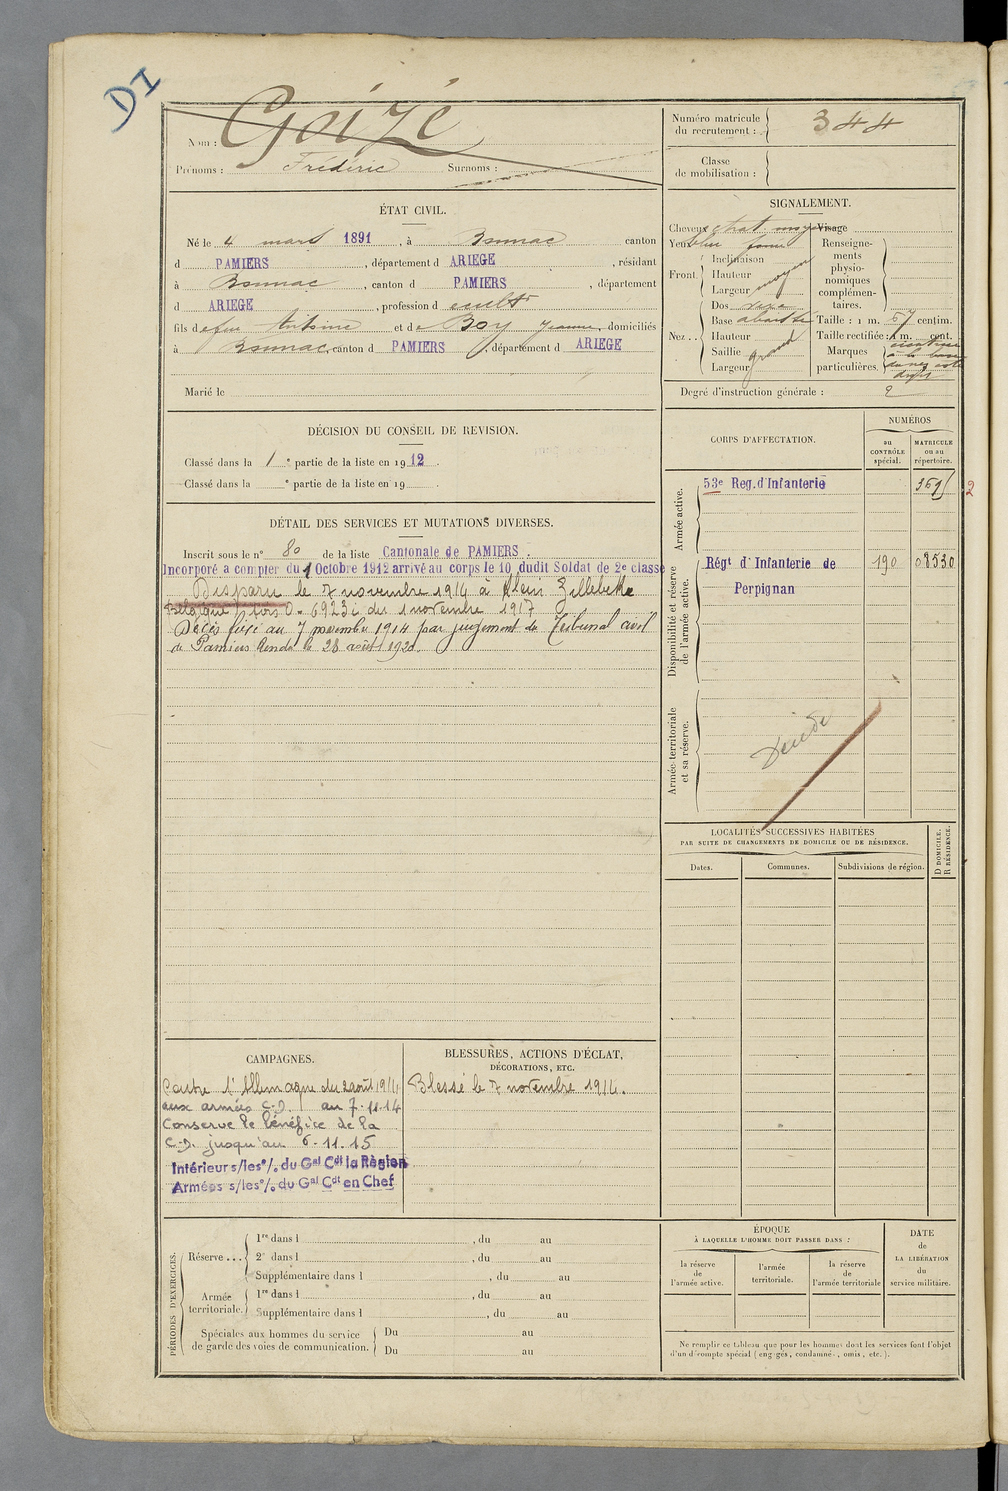 DI
Nom : Goizé
Prénoms : Frédéric Surnoms :
Numéro matricule du recrutement : 344
Classe de mobilisation :
ÉTAT CIVIL.
Né le 4 mars 1891, à Bonnac canton
d PAMIERS, département d ARIEGE, résidant
à Bonnac, canton d PAMIERS, département
d ARIEGE, profession d cultr
fils de feu Antoine et de Boy Jeanne, domiciliés
à Bonnac, canton d PAMIERS, département d ARIEGE
Marié le
SIGNALEMENT.
Cheveux chat moyen Visage
Yeux bleu
Front. Inclinaison
Hauteur
Largeur moyen
Nez.. Dos
Base abaissé
Hauteur
Saillie grand
Largeur
Renseignements physionomiques complémentaires.
Taille : 1 m. 67 centim.
Taille rectifiée : 1 m. cent.
Marques particulières. cicatrice
à la base
du nez côté
droit
Degré d'instruction générale : 2
DÉCISION DU CONSEIL DE REVISION.
Classé dans la 1e partie de la liste en 1912.
Classé dans la e partie de la liste en 19 .
DÉTAIL DES SERVICES ET MUTATIONS DIVERSES.
Inscrit sous le n° 80 de la liste Cantonale de PAMIERS.
Incorporé a compter du 1 Octobre 1912 arrivé au corps le 10 dudit Soldat de 2e classe
Disparu le 7 novembre 1914 à Klein Zillebeke
Belgique) 0.6923 du 1 novembre 1917
Décès fixé au 7 novembre 1914 par jugement du Tribunal civil
de Pamiers Rendu le 28 août 1920.
CORPS D'AFFECTATION.
NUMÉROS
au CONTRÔLE spécial.
MATRICULE ou au répertoire.
Armée active.
53e Reg. d'Infanterie
2
Disponibilité et réserve de l'armée active.
Régt d'Infanterie de 190 08530
Perpignan
Armée territoriale et sa réserve.
Décédé
LOCALITÉS SUCCESSIVES HABITÉES
PAR SUITE DE CHANGEMENTS DE DOMICILE OU DE RÉSIDENCE.
Dates.
Communes.
Subdivisions de région.
D DOMICILE. R RÉSIDENCE.
CAMPAGNES.
Contre l'Allemagne du 2 août 1914
aux armées C.D. au 7-11-14
Conserve le bénéfice de la
C.D. jusqu'au 6-11-15
Intérieur s/les o/. du Gal Cdt la Région
Armées s/les o/. du Gal Cdt en Chef
BLESSURES, ACTIONS D'ÉCLAT,
DÉCORATIONS, ETC.
Blessé le 7 novembre 1914.
PÉRIODES D'EXERCICES.
Réserve ... 1re dans l , du au
2e dans l , du au
Supplémentaire dans l , du au
Armée territoriale. 1re dans l , du au
Supplémentaire dans l , du au
Spéciales aux hommes du service de garde des voies de communication. Du au
Du au
ÉPOQUE
À LAQUELLE L'HOMME DOIT PASSER DANS :
la réserve de l'armée active.
l'armée territoriale.
la réserve de l'armée territoriale
DATE de LA LIBÉRATION du service militaire.
Ne remplir ce tableau que pour les hommes dont les services font l'objet
d'un décompte spécial (engagés, condamnés, omis, etc.).